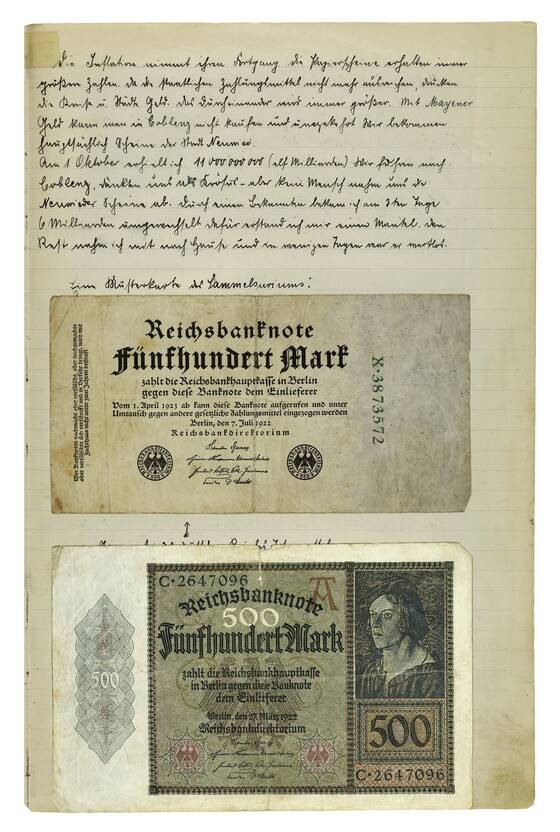 Die Inflation nimmt ihren Fortgang die Papierscheine erhalten immer
größere Zahlen. da die staatlichen Zahlungsmittel nicht mehr ausreichen, drucken
die Kreise u. Städte Geld. das Durcheinander wird immer größer. Mit Mayener
Geld kann man in Coblenz nicht kaufen und umgekehrt Wir bekommen
hauptsächlich Scheine der Stadt Neuwied.
Am 1 Oktober erhielt ich 11 000 000 000 (elf Milliarden) Wir fuhren nach
Coblenz, dünkten uns als Krösus - aber kein Mensch nahm uns die
Neuwieder Scheine ab. durch einen Bekannten bekam ich am 3ten Tage
6 Milliarden umgewechselt dafür erstand ich mir einen Mantel. den
Rest nahm ich mit nach Hause und in wenigen Tagen war er wertlos.
Eine Musterkarte des Sammelsuriums:
Reichsbanknote
Fünfhundert Mark
zahlt die Reichsbankhauptkasse in Berlin
gegen diese Banknote dem Einlieferer
Vom 1. April 1923 ab kann diese Banknote aufgerufen und unter
Umtausch gegen andere gesetzliche Zahlungsmittel eingezogen werden
Berlin, den 7. Juli 1922
Reichsbankdirektorium
Wer Banknoten nachmacht oder verfälscht, oder nachgemachte
oder verfälschte sich verschafft und in Verkehr bringt, wird mit
Zuchthaus nicht unter zwei Jahren bestraft
X·3873572
C·2647096
A
Reichsbanknote
500
Fünfhundert Mark
zahlt die Reichsbankhauptkasse
in Berlin gegen diese Banknote
dem Einlieferer
Berlin, den 27. März 1922
Reichsbankdirektorium
500
500
C·2647096